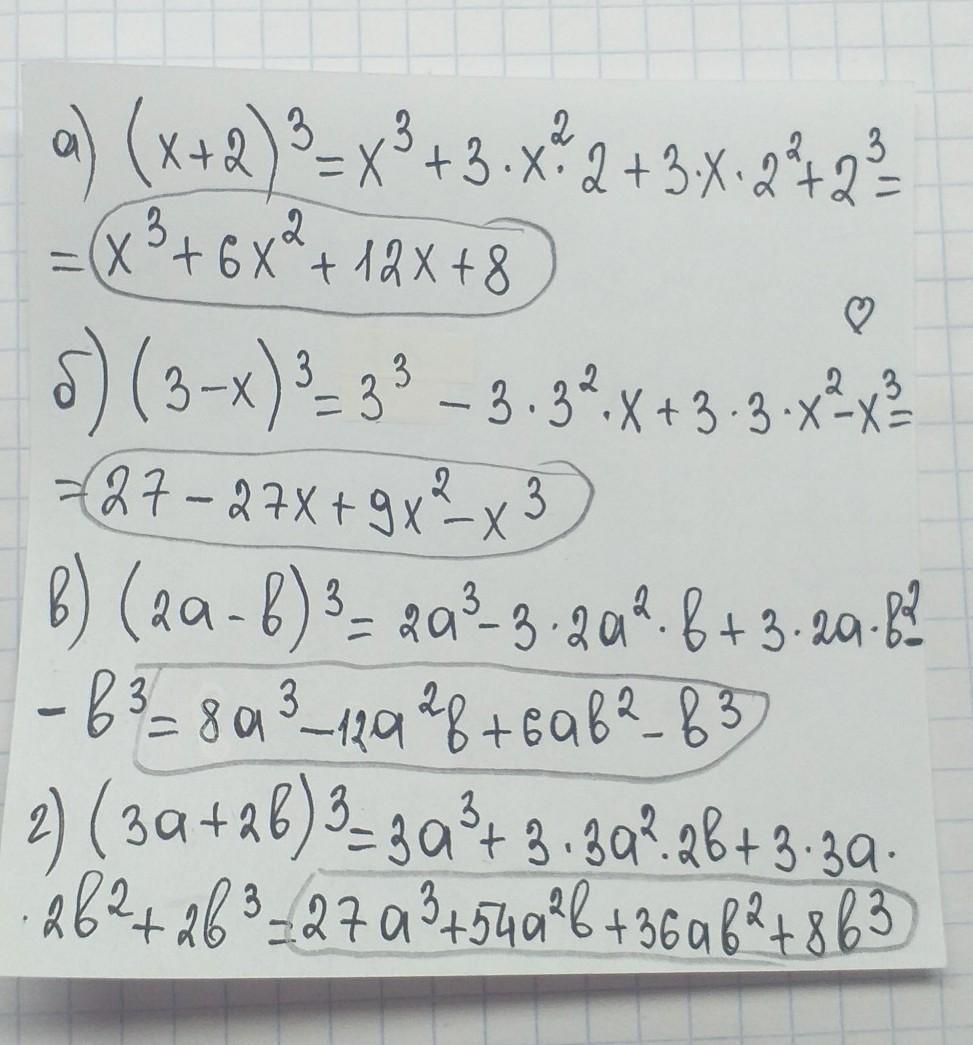 а) (x+2)³=x³+3·x²·2+3·x·2²+2³=
=x³+6x²+12x+8
б) (3-x)³=3³-3·3²·x+3·3·x²-x³=
=27-27x+9x²-x³
в) (2a-b)³=2a³-3·2a²·b+3·2a·b²-
-b³=8a³-12a²b+6ab²-b³
г) (3a+2b)³=3a³+3·3a²·2b+3·3a·
·2b²+2b³=27a³+54a²b+36ab²+8b³